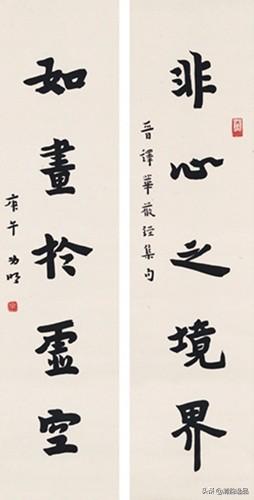 非心之境界
晉譯華嚴經集句
如畫於虛空
庚午